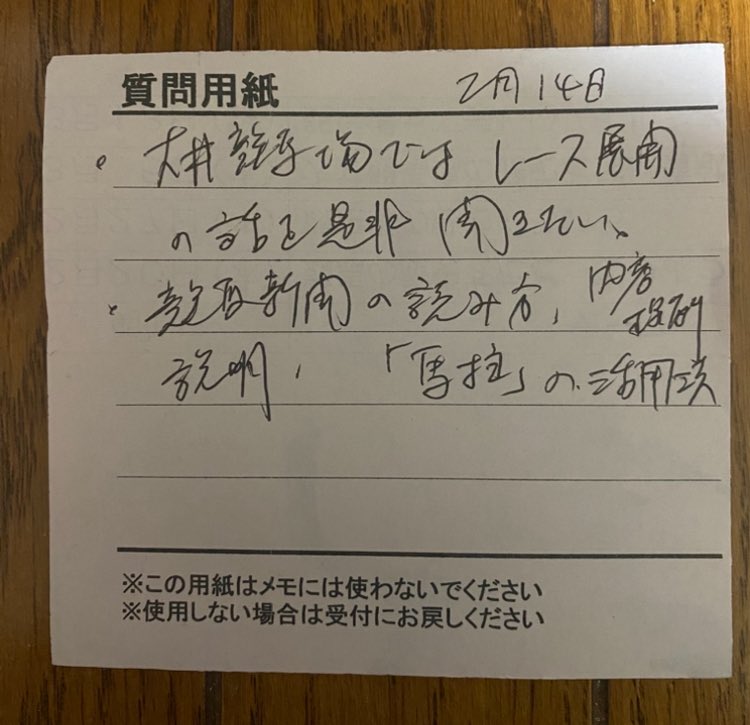 質問用紙 2月14日
・大井競馬場では レース展開
の話を是非 聞きたい。
・競馬新聞の読み方、内容
説明、「馬柱」の活用法
※この用紙はメモには使わないでください
※使用しない場合は受付にお戻しください